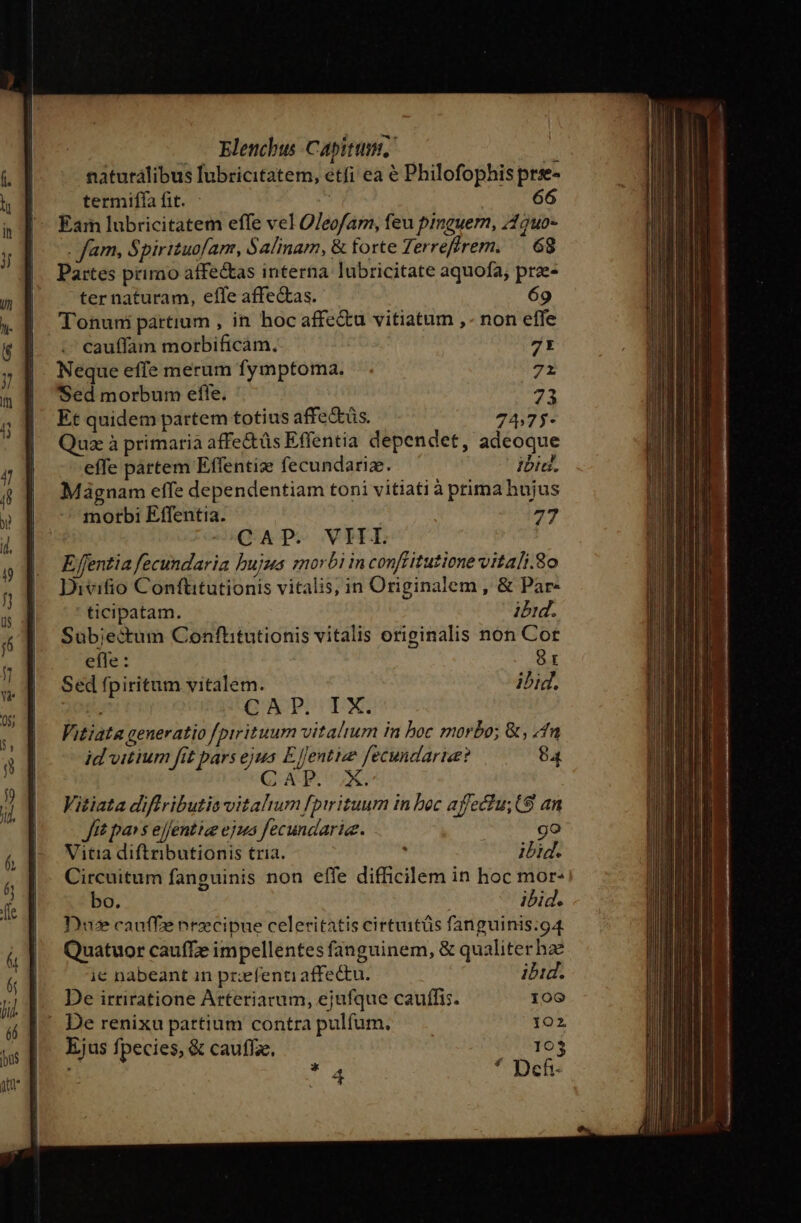 Elenchus Capitum,
naturalibus lubricitatem, etſi ea è Philoſophis præ-
termiſſa ſit. 66
Eam lubricitatem eſſe vel Oleoſam, ſeu pinguem, Aquo-
ſam, Spirituoſam, Salinam, & forte Terreſtrem. 68
Partes primo affectas interna lubricitate aquoſa, præ-
ter naturam, eſſe affectas. 69
Tonum partium, in hoc affectu vitiatum, non eſſe
cauſſam morbificam. 71
Neque eſſe merum ſymptoma. 72
Sed morbum eſſe. 73
Et quidem partem totius affectûs. 74,75.
Quæ à primaria affectûs Eſſentia dependet, adeoque
eſſe partem Eſſentiæ ſecundariæ. ibid.
Magnam eſſe dependentiam toni vitiati à prima hujus
morbi Eſſentia. 77
CAP. VIII.
Eſſentia ſecundaria hujus morbi in conſtitutione vitali. 80
Diviſio Conſtitutionis vitalis, in Originalem, & Par-
ticipatam. ibid.
Subjectum Conſtitutionis vitalis originalis non Cor
eſſe: 81
Sed ſpiritum vitalem. ibid.
CAP. IX.
Vitiata generatio ſpirituum vitalium in hoc morbo; &, An
id vitium ſit pars ejus Eſſentiæ ſecundariæ? 84
CAP. X.
Vitiata diſtributio vitalium ſpirituum in hoc affectu; & an
ſit pars eſſentiæ ejus ſecundariæ. 90
Vitia diſtributionis tria. ibid.
Circuitum ſanguinis non eſſe difficilem in hoc mor-
bo. ibid.
Duæ cauſſæ præcipue celeritatis cirtuitûs ſanguinis. 94
Quatuor cauſſæ impellentes ſanguinem, & qualiter hæ
ſe habeant in præſenti affectu. ibid.
De irriratione Arteriarum, ejuſque cauſſis. 100
De renixu partium contra pulſum. 102
Ejus ſpecies, & cauſſæ. 103
* 4 Defi-